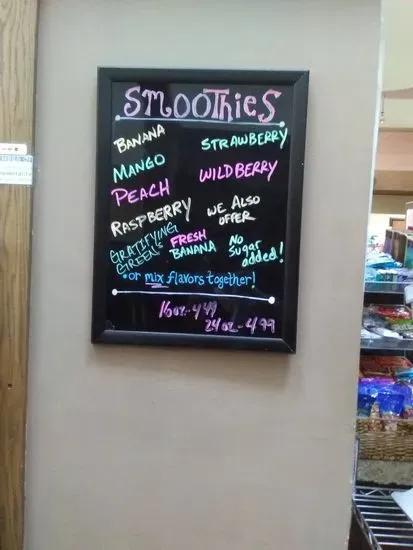 SMOOThiES
BANANA
STRAWBERRY
MANGO
WILDBERRY
PEACH
RASPBERRY
WE ALSO
OFFER
GRATIFYING
GREENS
FRESH
BANANA
No
Sugar
added!
•or mix flavors together!
16oz-4.49
24oz-4.99